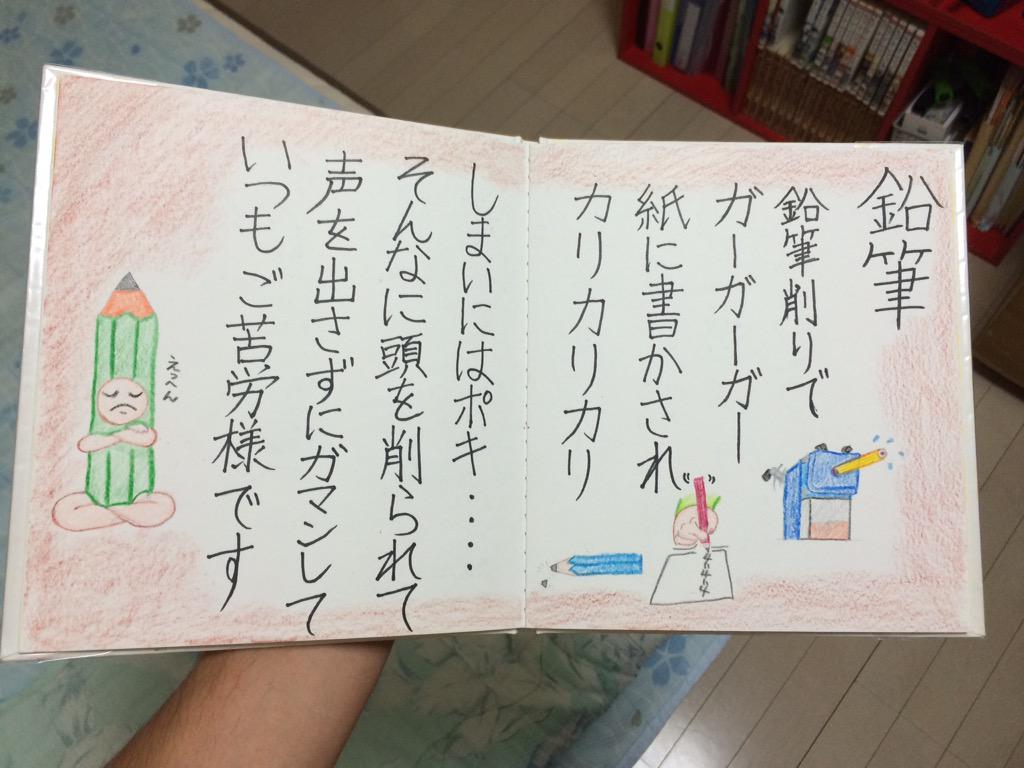 鉛筆
鉛筆削りで
ガーガーガー
紙に書かされ
カリカリカリ
しまいにはポキ・・・・
そんなに頭を削られて
声を出さずにガマンして
いつもご苦労様です
えっへん